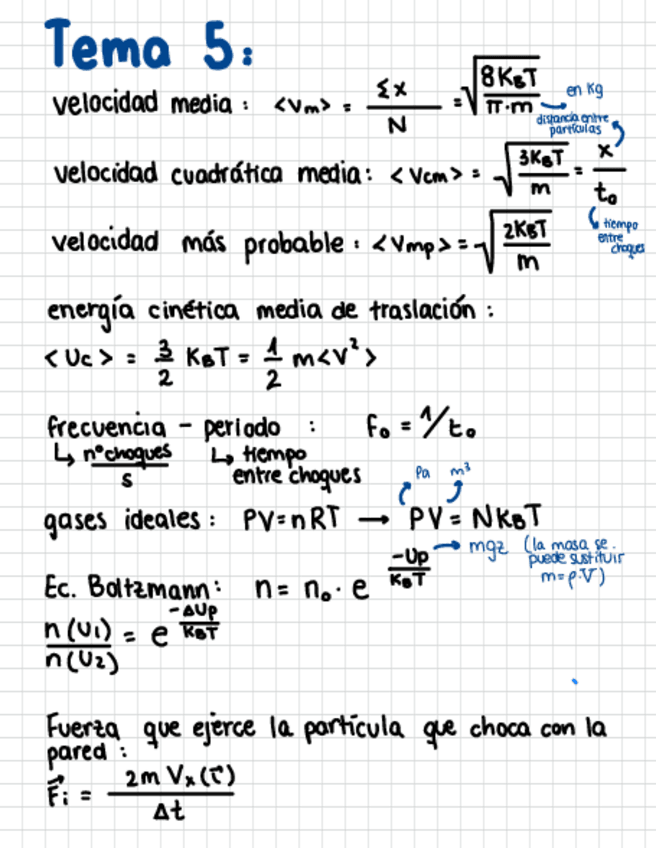 Tema 5:
velocidad media : <Vm> = Σx / N = √(8KBT / π·m) → en Kg
distancia entre partículas
velocidad cuadrática media: <Vcm> = √(3KBT / m) = x / to
tiempo entre choques
velocidad más probable : <Vmp> = √(2KBT / m)
energía cinética media de traslación :
<Uc> = 3/2 KBT = 1/2 m<V²>
frecuencia - periodo : Fo = 1/to
↳ nº choques / s ↳ tiempo entre choques
Pa m³
gases ideales : PV=nRT → PV = NKBT
Ec. Boltzmann: n = no · e^(-Up / KBT) → mgz (la masa se puede sustituir m=ρ·V)
n(U1) / n(U2) = e^(-ΔUp / KBT)
Fuerza que ejerce la partícula que choca con la
pared :
F⃗i = 2m Vx (i⃗) / Δt